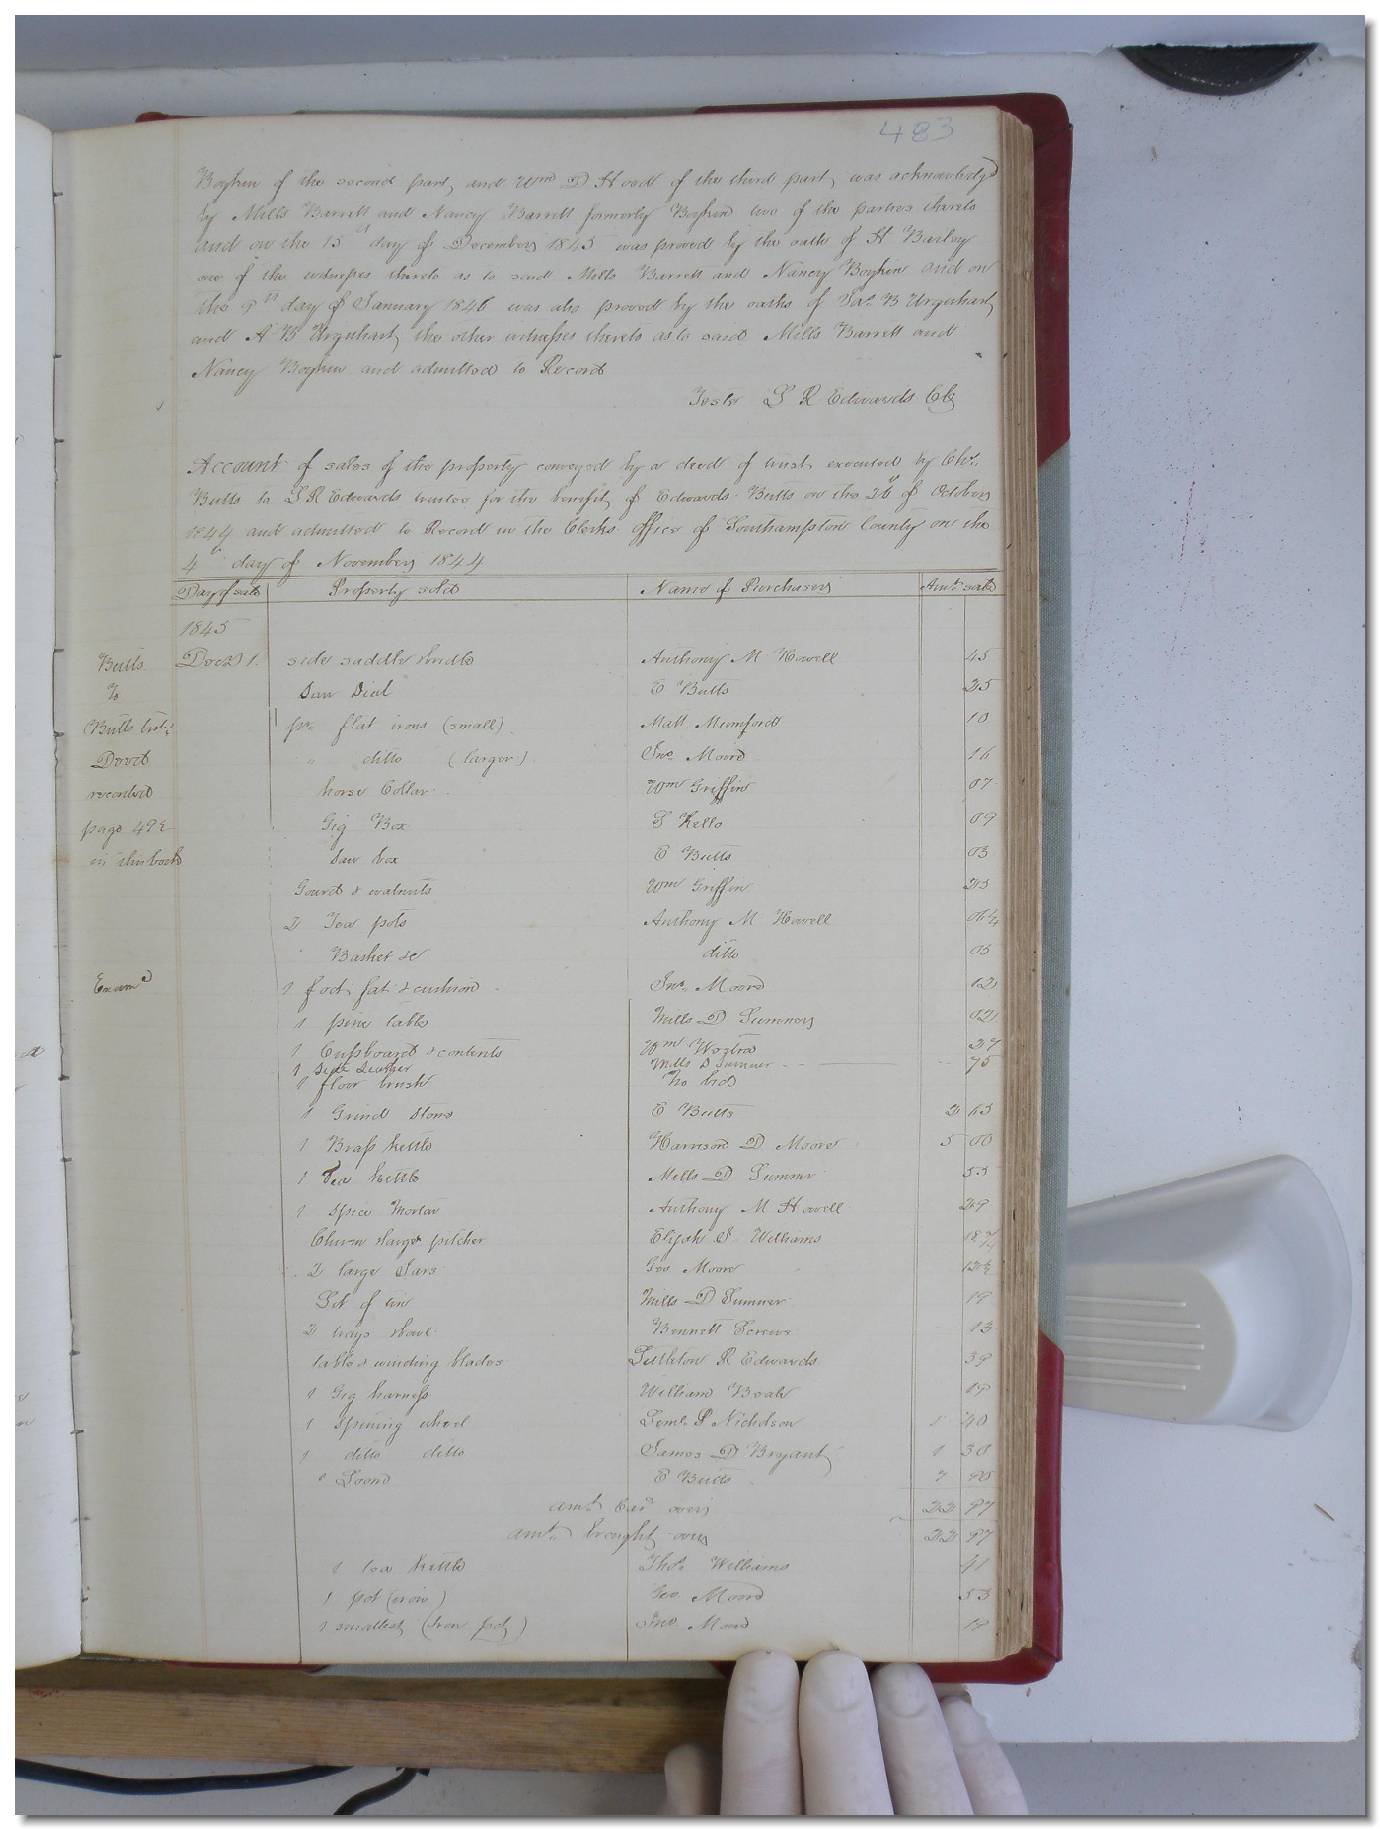 483
Boykin of the second part, and Wm D Hood of the third part, was acknowledgd
by Mills Barrett and Nancy Barrett formerly Boykin two of the parties thereto
and on the 15th day of December 1845 was proved by the oath of H Barley
one of the witnesses thereto as to said Mills Barrett and Nancy Boykin and on
the 9th day of January 1846 was also proved by the oaths of Jas B Urquhart
and A B Urquhart, the other witnesses thereto as to said Mills Barrett and
Nancy Boykin and admitted to Record
Teste L R Edwards Clk
Account of sales of the property conveyed by a deed of trust executed by
Butts to L R Edwards trustee for the benefit of Edwards Butts on the 26th of October
1844 and admitted to Record in the Clerks office of Southampton County on the
4th day of November 1844
Day of sale Property sold Name of Purchasers Amt sale
1845
Butts Decr 1. side saddle & bridle Anthony M Howell 45
To Saw Dial E Butts 25
Butts pr flat irons (small) Matt Mumford 10
Deed " ditto (larger) Jno Moore 16
recorded horse Collar Wm Griffin 07
page Gig Box S Kello 09
in this book Saw box E Butts 03
Gourd & walnuts Wm Griffin 25
2 Tea pots Anthony M Howell 06¼
Basket &c ditto 05
Examd 1 foot fat & cushion Jno Moore 12
1 pine table Mills D Sumner 02
1 Cupboard & contents Wm 27
1 Side Leather Mills D Sumner 75
1 floor brush No bid
1 Grind Stone E Butts 2 63
1 Brass kettle Harrison D Moore 5 00
1 Tea kettle Mills D Sumner 55
1 Spice Mortar Anthony M Howell 29
Churn & large pitcher Elijah S Williams 18¾
2 large Jars Geo Moore 12½
Set of tin Mills D Sumner 19
2 trays & bowl Bennett 13
table & winding blades Littleton R Edwards 39
1 Gig harness William Beale 19
1 Spining wheel Leml P Nicholson 1 40
1 ditto ditto James D Bryant 1 30
1 Loom E Butts 7
amt Card over 22 97
amt brought over 22 97
1 tea kettle Thos Williams 41
1 pot (iron) Geo Moore 53
1 smallest (Iron pot) Jno Moore 19